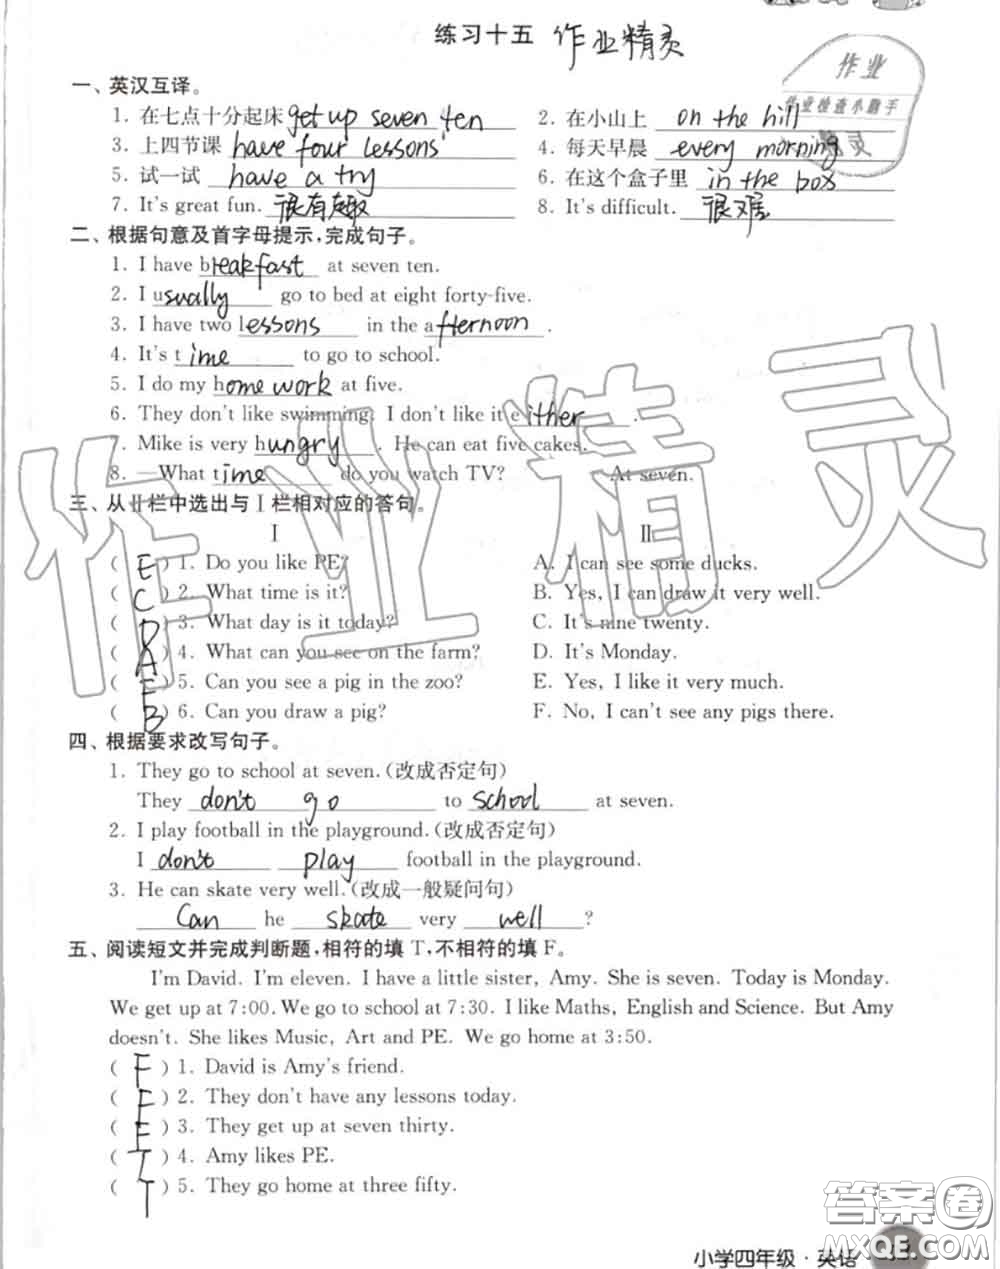 练习十五 作业精灵
作业
作业检查小助手
精灵
一、英汉互译。
1. 在七点十分起床 get up seven ten 2. 在小山上 on the hill
3. 上四节课 have four lessons 4. 每天早晨 every morning
5. 试一试 have a try 6. 在这个盒子里 in the box
7. It's great fun. 很有趣 8. It's difficult. 很难
二、根据句意及首字母提示,完成句子。
1. I have breakfast at seven ten.
2. I usually go to bed at eight forty-five.
3. I have two lessons in the afternoon.
4. It's time to go to school.
5. I do my homework at five.
6. They don't like swimming. I don't like it either.
7. Mike is very hungry. He can eat five cakes.
8. —What time do you watch TV? —At seven.
三、从Ⅱ栏中选出与Ⅰ栏相对应的答句。
Ⅰ Ⅱ
( E ) 1. Do you like PE? A. I can see some ducks.
( C ) 2. What time is it? B. Yes, I can draw it very well.
( D ) 3. What day is it today? C. It's nine twenty.
( A ) 4. What can you see on the farm? D. It's Monday.
( F ) 5. Can you see a pig in the zoo? E. Yes, I like it very much.
( B ) 6. Can you draw a pig? F. No, I can't see any pigs there.
四、根据要求改写句子。
1. They go to school at seven.(改成否定句)
They don't go to school at seven.
2. I play football in the playground.(改成否定句)
I don't play football in the playground.
3. He can skate very well.(改成一般疑问句)
Can he skate very well ?
五、阅读短文并完成判断题,相符的填 T,不相符的填 F。
I'm David. I'm eleven. I have a little sister, Amy. She is seven. Today is Monday.
We get up at 7:00. We go to school at 7:30. I like Maths, English and Science. But Amy
doesn't. She likes Music, Art and PE. We go home at 3:50.
( F ) 1. David is Amy's friend.
( F ) 2. They don't have any lessons today.
( F ) 3. They get up at seven thirty.
( T ) 4. Amy likes PE.
( T ) 5. They go home at three fifty.
小学四年级·英语
作业精灵
答案圈
MXQE.COM